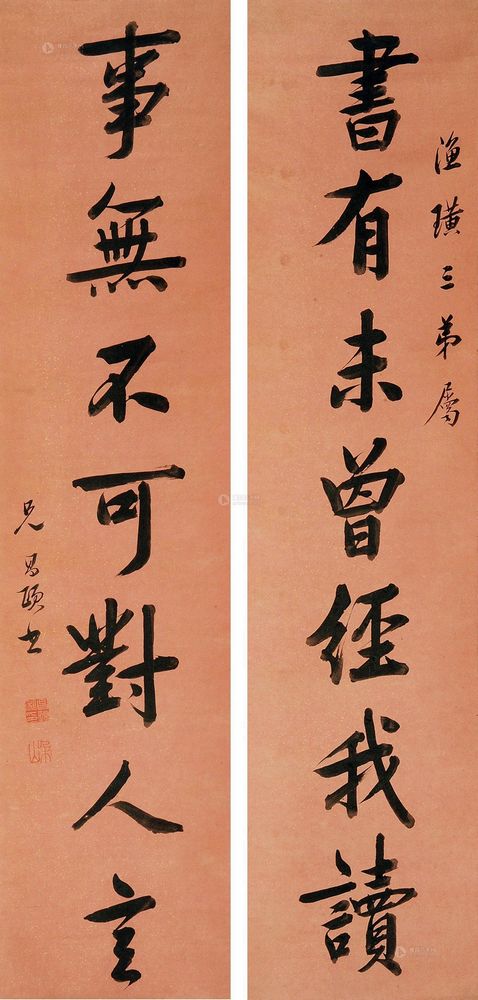 漁璜三弟屬
書有未曾經我讀
事無不可對人言
兄昌頤書